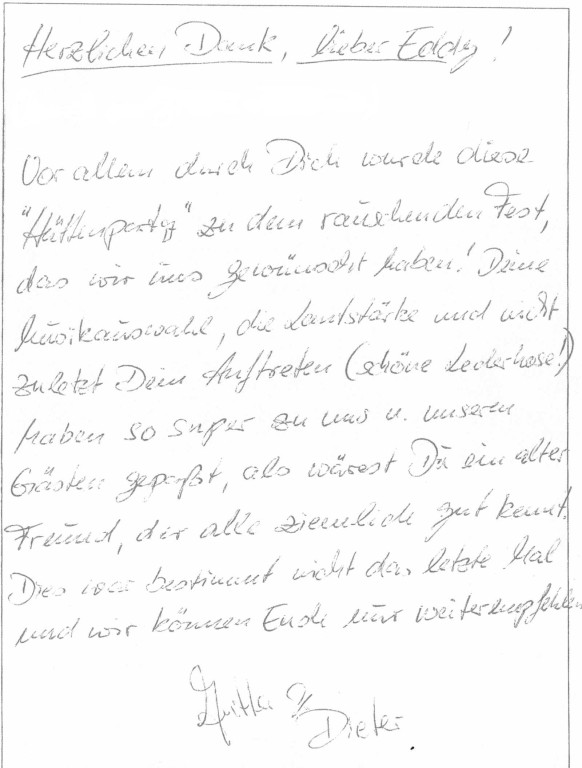 Herzlichen Dank, lieber Eddy!
Vor allem durch Dich wurde diese
"Hüttenparty" zu dem rauschenden Fest,
das wir uns gewünscht haben! Deine
Musikauswahl, die Lautstärke und nicht
zuletzt Dein Auftreten (schöne Lederhose!)
haben so super zu uns u. unseren
Gästen gepaßt, als wärest Du ein alter
Freund, der alle ziemlich gut kennt.
Dies war bestimmt nicht das letzte Mal
und wir können Euch nur weiterempfehlen
Dieter